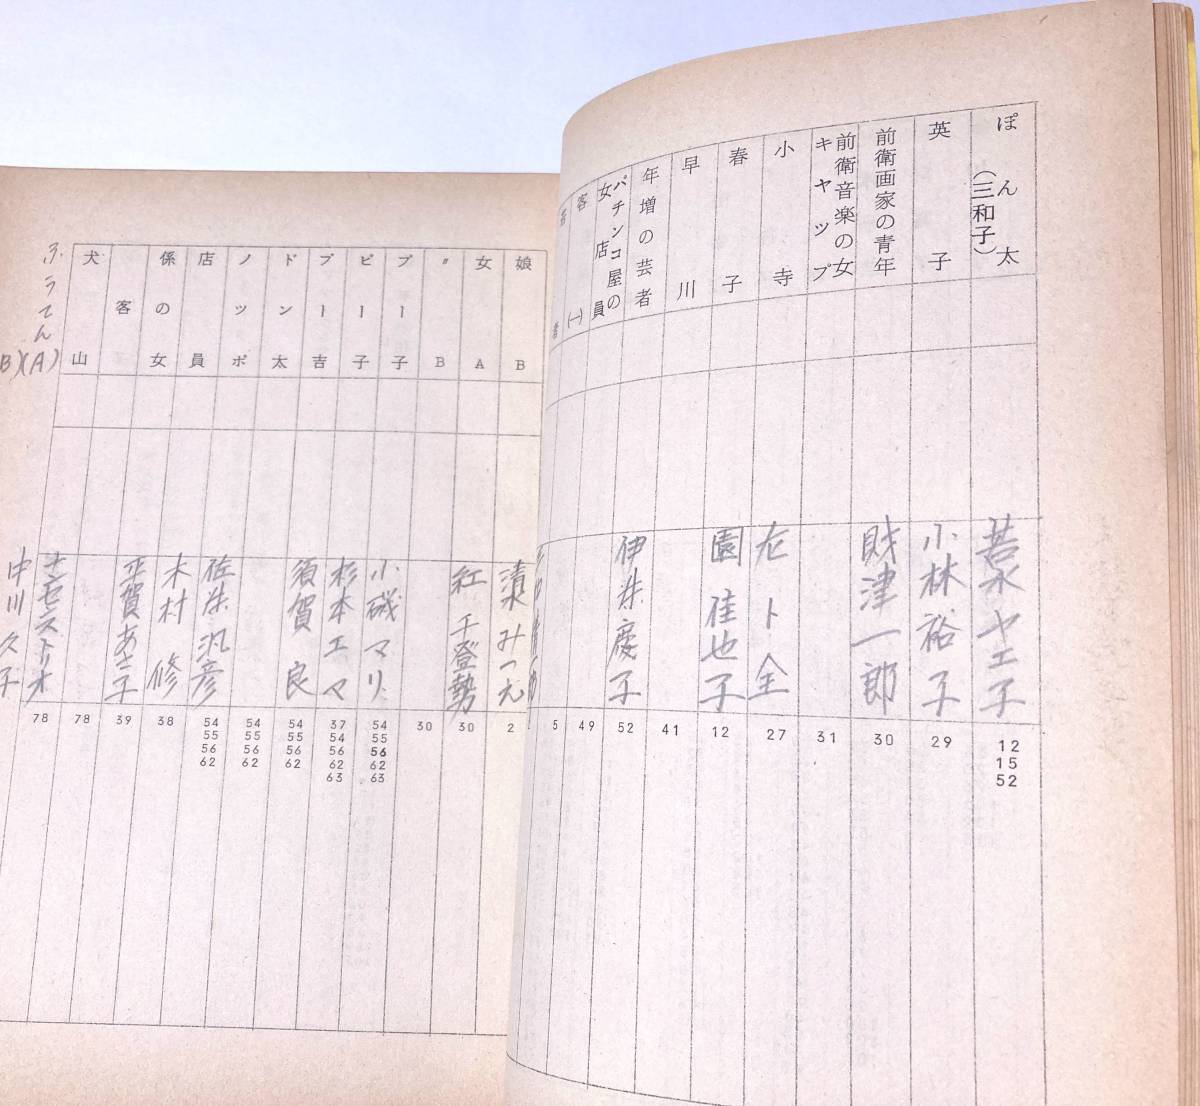 ぽん太
(三和子)
若水ヤエ子
12
15
52
英子
小林裕子
29
前衛画家の青年
財津一郎
30
前衛音楽の女
キヤップ
31
小寺
左卜全
27
春子
園佳也子
12
早川
41
年増の芸者
伊藤慶子
52
パチンコ屋の
女店員
49
客(一)
5
娘B
清水みつえ
2
女A
紅千登勢
30
〃B
30
プー子
小磯マリ
54
55
56
62
63
ピー子
杉本エマ
37
54
56
62
63
プー吉
須賀良
54
55
56
62
ドン太
54
55
56
62
ノッポ
佐藤汎彦
54
55
56
62
店員
木村修
38
係の女
平賀あさ子
39
客
78
犬山
ナンセンストリオ
78
ふうてん(A)
中川久子
B)